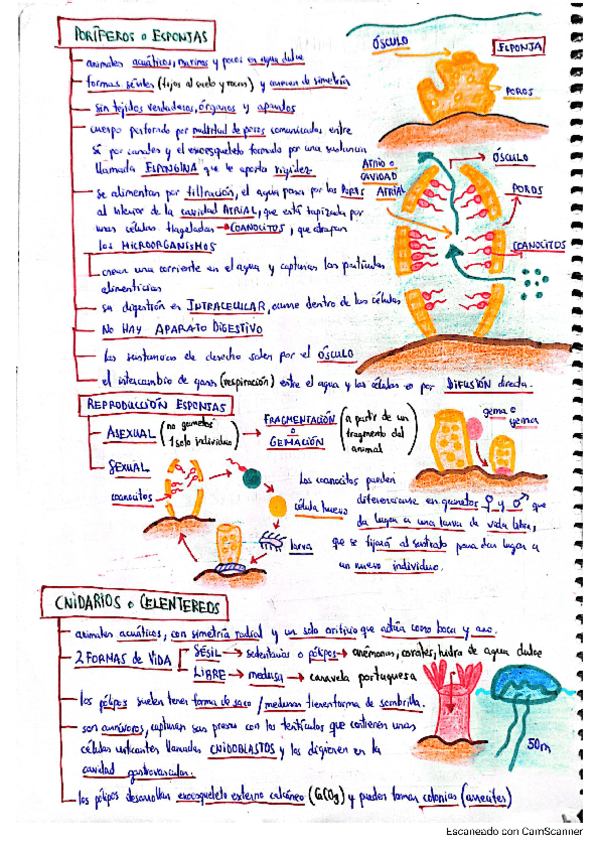 PORÍFEROS o ESPONJAS
animales acuáticos, marinos y pocos en agua dulce
formas sésiles (fijos al suelo y rocas) y carecen de simetría
sin tejidos verdaderos, órganos y aparatos
cuerpo perforado por multitud de poros comunicados entre
sí por canales y el exoesqueleto formado por una sustancia
llamada ESPONGINA que le aporta rigidez
se alimentan por filtración, el agua pasa por los POROS
al interior de la cavidad ATRIAL, que está tapizada por
unas células flageladas → COANOCITOS, que atrapan
los MICROORGANISMOS
crean una corriente en el agua y capturan las partículas
alimenticias
su digestión es INTRACELULAR, ocurre dentro de las células
NO HAY APARATO DIGESTIVO
las sustancias de desecho salen por el ÓSCULO
el intercambio de gases (respiración) entre el agua y las células es por DIFUSIÓN directa.
ÓSCULO
ESPONJA
POROS
ATRIO o
CAVIDAD
ATRIAL
ÓSCULO
POROS
COANOCITOS
REPRODUCCIÓN ESPONJAS
ASEXUAL (no gametos
1 solo individuo) → FRAGMENTACIÓN
o
GEMACIÓN (a partir de un
fragmento del
animal
gema o
yema
SEXUAL
coanocitos
célula huevo
larva
Los coanocitos pueden
diferenciarse en gametos ♀ y ♂ que
da lugar a una larva de vida libre,
que se fijará al sustrato para dar lugar a
un nuevo individuo.
CNIDARIOS o CELENTEREOS
animales acuáticos, con simetría radial y un solo orificio que actúa como boca y ano.
2 FORMAS DE VIDA
SÉSIL → sedentarias o pólipos → anémonas, corales, hidra de agua dulce
LIBRE → medusa → caravela portuguesa
los pólipos suelen tener forma de saco / medusas tienen forma de sombrilla.
son carnívoros, capturan sus presas con los tentículos que contienen unas
células urticantes llamadas CNIDOBLASTOS y las digieren en la
cavidad gastrovascular.
los pólipos desarrollan exoesqueleto externo calcáreo (CaCO3) y pueden formar colonias (arrecifes)
50m
Escaneado con CamScanner